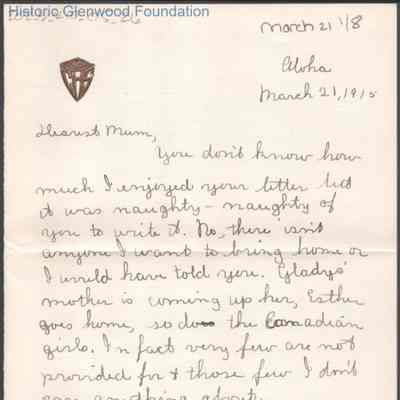 Historic Glenwood Foundation
March 21 1/8
Aloha
March 21, 1915
Dearest Mum,
You don't know how
much I enjoyed your letter but
it was naughty - naughty of
you to write it. No, there isn't
anyone I want to bring home or
I would have told you. Gladys'
mother is coming up her, Esther
goes home, so do the Canadian
girls. In fact very few are not
provided for & those few I don't
care anything about.